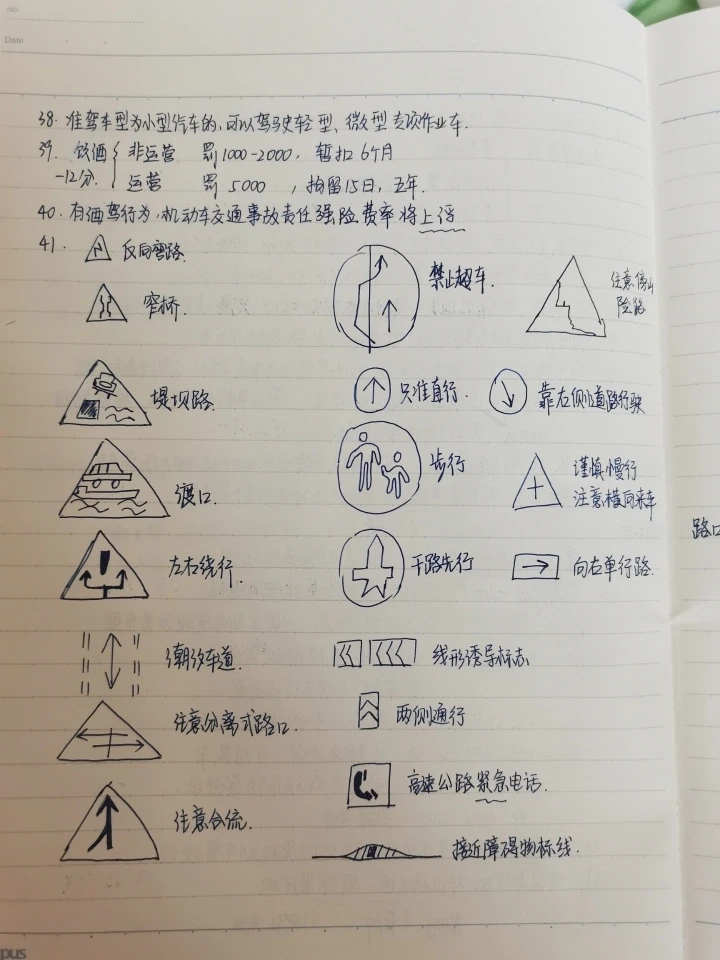 No.
Date
38. 准驾车型为小型汽车的,可以驾驶轻型、微型专项作业车.
39. 饮酒 非运营 罚1000-2000, 暂扣6个月
-12分. 运营 罚5000 , 拘留15日, 五年.
40. 有酒驾行为,机动车交通事故责任强险费率将上浮
41. 反向弯路.
禁止超车.
注意傍山
险路
窄桥.
堤坝路.
只准直行.
靠左侧道路行驶
渡口.
步行
谨慎慢行
注意横向来车
左右绕行.
干路先行
向右单行路.
路口
潮汐车道.
线形诱导标志
注意分离式路口.
两侧通行
高速公路紧急电话.
注意合流.
接近障碍物标线.
pus